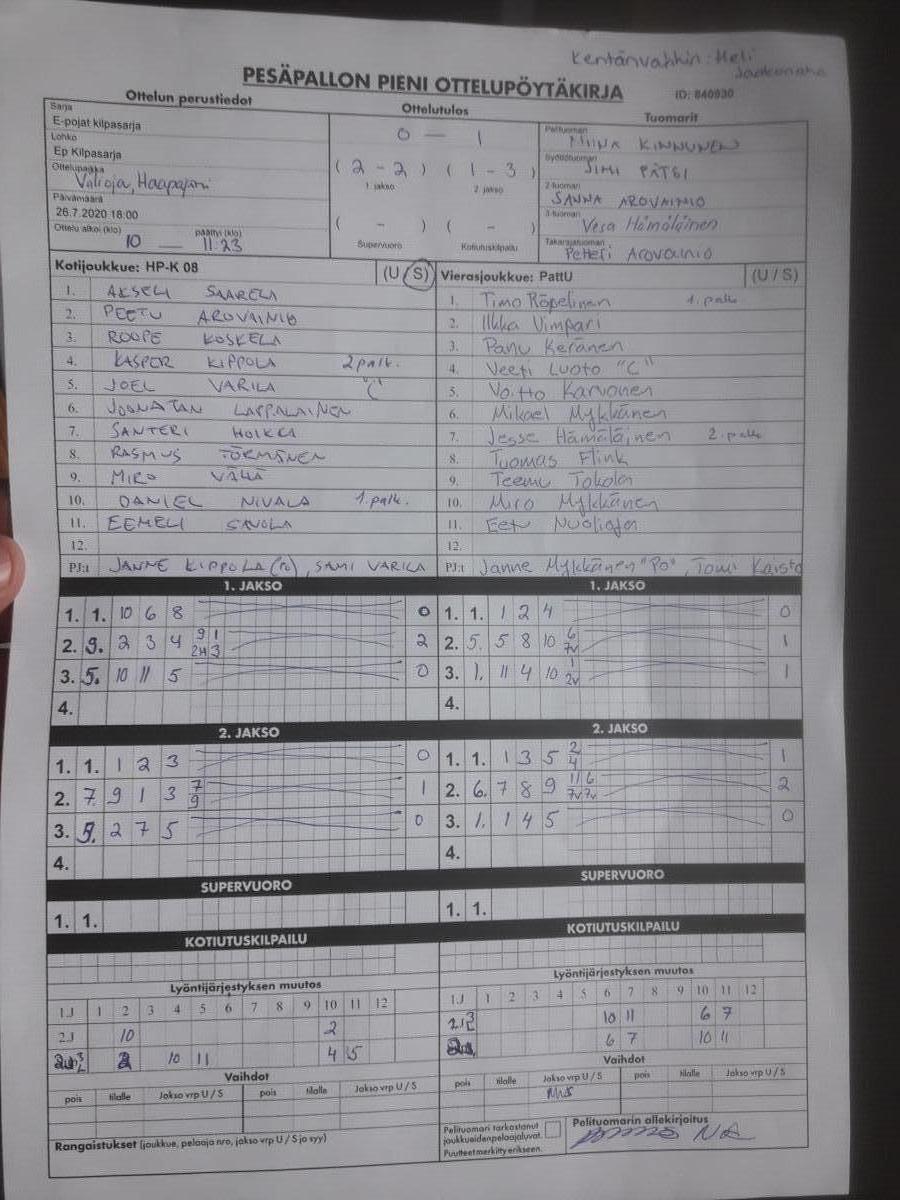 Kentänvaihtin: Heli
PESÄPALLON PIENI OTTELUPÖYTÄKIRJA
ID: 840930
Ottelun perustiedot
Ottelutulos
Tuomarit
Sarja
E-pojat kilpasarja
Lohko
Ep Kilpasarja
Ottelupaikka
Haapajärvi
Päivämäärä
26.7.2020 18:00
Ottelu alkoi (klo) päättyi (klo)
10 — 11.23
0 — 1
( 2 - 2 ) ( 1 - 3 )
1. jakso 2. jakso
( - ) ( - )
Supervuoro Kotiutuskilpailu
Pelituomari
MIINA KINNUNEN
Syöttötuomari
JIMI PÄTSI
2-tuomari
SANNA AROVAINIO
3-tuomari
Vesa Hämäläinen
Takarajatuomari
Petteri AROVAINIO
Kotijoukkue: HP-K 08 (U / S)
1. AKSELI SAARELA
2. PEETU AROVAINIO
3. ROOPE KOSKELA
4. KASPER KIPPOLA 2 palk.
5. JOEL VARILA "C"
6. JOONATAN LAPPALAINEN
7. SANTERI HOIKKA
8. RASMUS TÖRMÄNEN
9. MIRO VÄHÄ
10. DANIEL NIVALA 1.palk.
11. EEMELI SAVOLA
12.
PJ:t JANNE KIPPOLA (n), SAMI VARILA
Vierasjoukkue: PattU (U / S)
1. Timo Röpelinen 1. palk
2. Ilkka Vimpari
3. Panu Keränen
4. Veeti Luoto "C"
5. Voitto Karvonen
6. Mikael Mykkänen
7. Jesse Hämäläinen 2. palk
8. Tuomas Flink
9. Teemu Tokola
10. Miro Mykkänen
11. Eetu Nuolioja
12.
PJ:t Janne Mykkänen "PJ", Tomi Kaisto
1. JAKSO
1. 1. 10 6 8 0
2. 9. 2 3 4 9 1 2H 3 2
3. 5. 10 11 5 0
4.
1. JAKSO
1. 1. 1 2 4 0
2. 5. 5 8 10 6 7v 1
3. 1. 11 4 10 1 2v 1
4.
2. JAKSO
1. 1. 1 2 3 0
2. 7. 9 1 3 7 9 1
3. 5. 2 7 5 0
4.
2. JAKSO
1. 1. 1 3 5 2 4 1
2. 6. 7 8 9 11 6 7v 7v 2
3. 1. 1 4 5 0
4.
SUPERVUORO
1. 1.
SUPERVUORO
1. 1.
KOTIUTUSKILPAILU
KOTIUTUSKILPAILU
Lyöntijärjestyksen muutos
1.J 1 2 3 4 5 6 7 8 9 10 11 12
2.J 10 2
2 10 11 4 5
Lyöntijärjestyksen muutos
1.J 1 2 3 4 5 6 7 8 9 10 11 12
10 11 6 7
6 7 10 11
Vaihdot
pois tilalle Jakso vrp U / S pois tilalle Jakso vrp U / S
Vaihdot
pois tilalle Jakso vrp U / S pois tilalle Jakso vrp U / S
Rangaistukset (joukkue, pelaaja nro, jakso vrp U / S ja syy)
Pelituomari tarkastanut
joukkueiden pelaajaluvat.
Puutteet merkitty erikseen.
Pelituomarin allekirjoitus